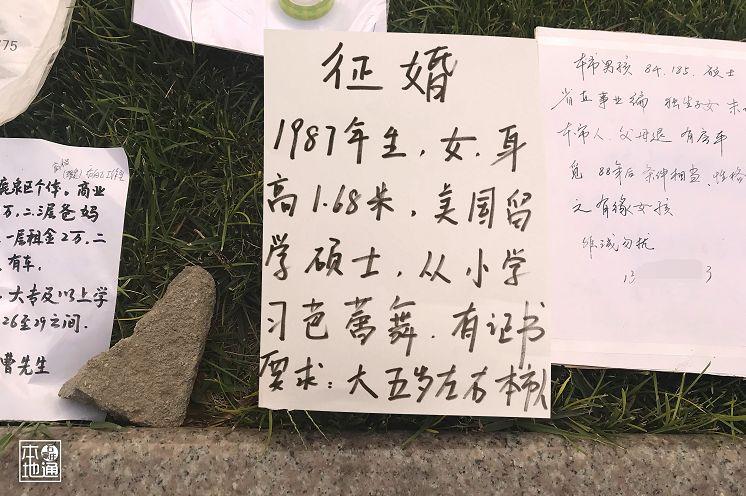 征婚
1987年生，女，身
高1.68米，美国留
学硕士，从小学
习芭蕾舞．有证书
要求：大五岁左右本市人
本市男孩 84．185．硕士
省直事业编 独生子女 未
本市人．父母退 有房车
觅 88年后条件相当．性格
之有缘女孩
非诚勿扰
13 3
775
个体。商业
万，二层爸妈
一层租金2万，二
有车．
大专及以上学
26至29之间．
曹先生
本地通